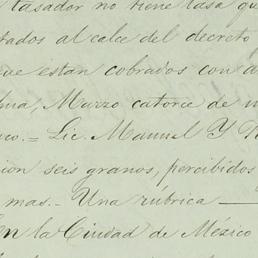 tasador no tiene tasa qu
tados al calce del decreto
que estan cobrados con a
Marzo catorce de
co.= Lic. Manuel Y
cion seis granos, percibidos
mas.- Una rúbrica —
En la Ciudad de México